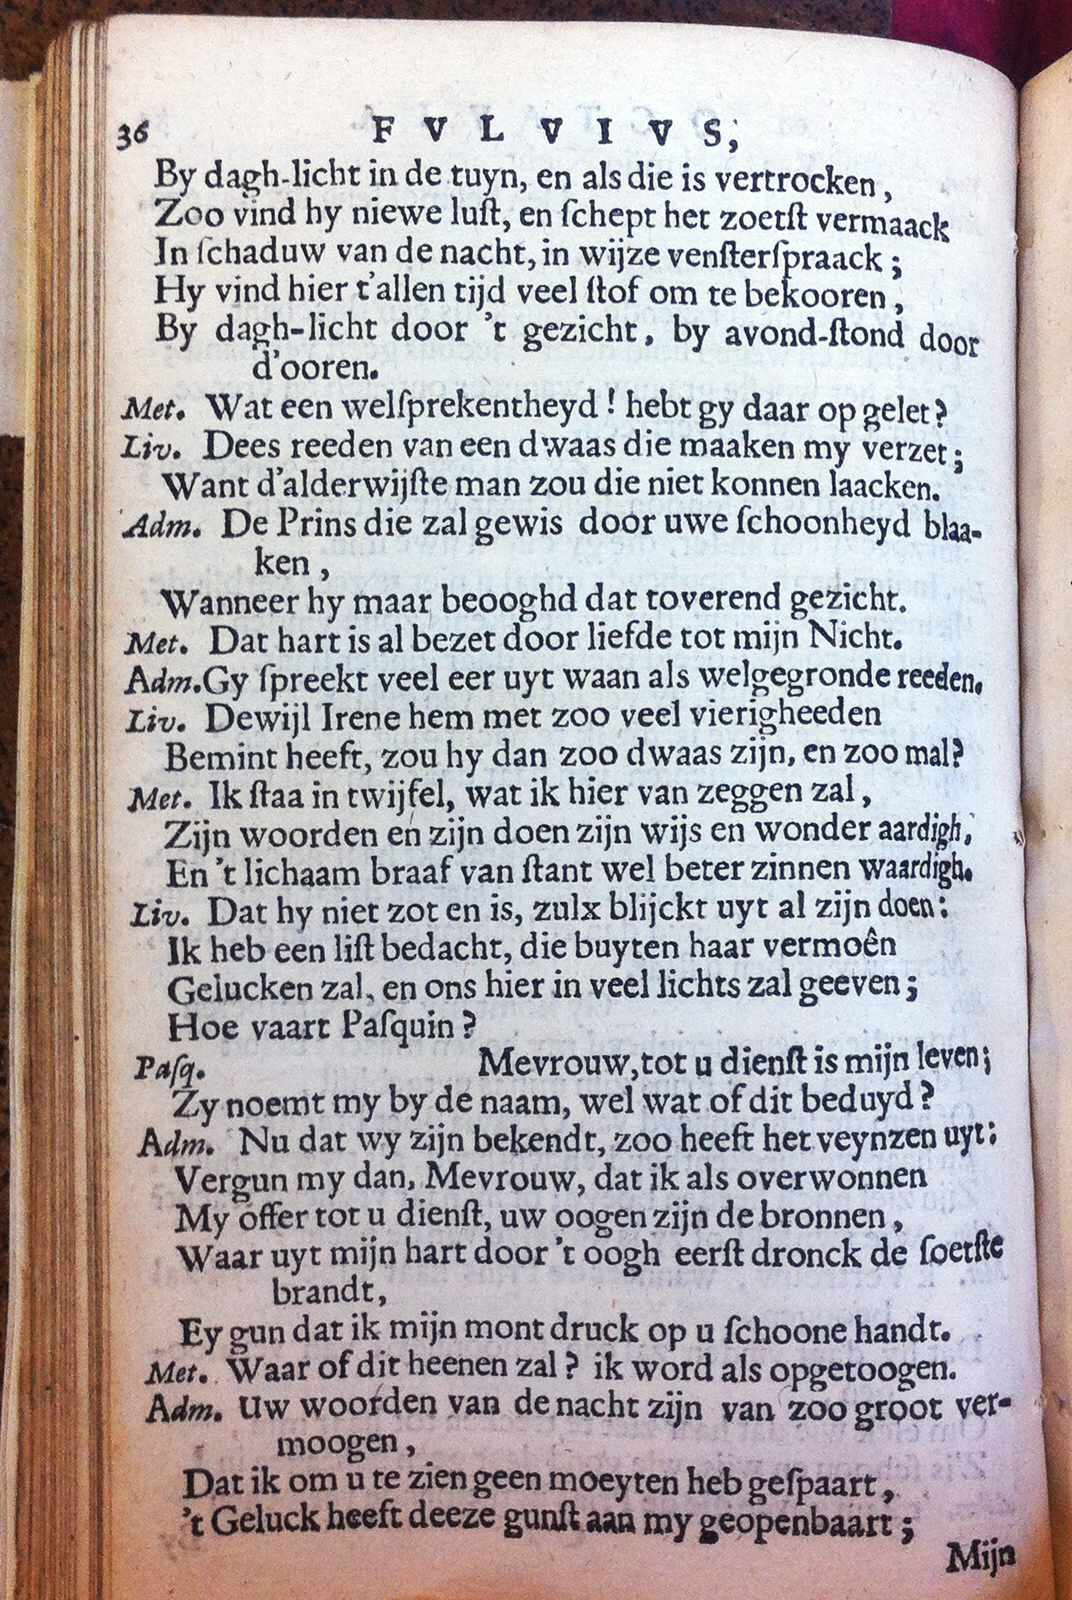 36 FVLVIVS,
By dagh-licht in de tuyn, en als die is vertrocken,
Zoo vind hy niewe luſt, en ſchept het zoetſt vermaack
In ſchaduw van de nacht, in wijze venſterſpraack;
Hy vind hier t'allen tijd veel ſtof om te bekooren,
By dagh-licht door 't gezicht, by avond-ſtond door
d'ooren.
Met. Wat een welſprekentheyd! hebt gy daar op gelet?
Liv. Dees reeden van een dwaas die maaken my verzet;
Want d'alderwijſte man zou die niet konnen laacken.
Adm. De Prins die zal gewis door uwe ſchoonheyd blaa-
ken,
Wanneer hy maar beooghd dat toverend gezicht.
Met. Dat hart is al bezet door liefde tot mijn Nicht.
Adm. Gy ſpreekt veel eer uyt waan als welgegronde reeden.
Liv. Dewijl Irene hem met zoo veel vierigheeden
Bemint heeft, zou hy dan zoo dwaas zijn, en zoo mal?
Met. Ik ſtaa in twijfel, wat ik hier van zeggen zal,
Zijn woorden en zijn doen zijn wijs en wonder aardigh,
En 't lichaam braaf van ſtant wel beter zinnen waardigh.
Liv. Dat hy niet zot en is, zulx blijckt uyt al zijn doen:
Ik heb een liſt bedacht, die buyten haar vermoên
Gelucken zal, en ons hier in veel lichts zal geeven;
Hoe vaart Paſquin?
Paſq. Mevrouw, tot u dienſt is mijn leven;
Zy noemt my by de naam, wel wat of dit beduyd?
Adm. Nu dat wy zijn bekendt, zoo heeft het veynzen uyt:
Vergun my dan, Mevrouw, dat ik als overwonnen
My offer tot u dienſt, uw oogen zijn de bronnen,
Waar uyt mijn hart door 't oogh eerſt dronck de ſoetſte
brandt,
Ey gun dat ik mijn mont druck op u ſchoone handt.
Met. Waar of dit heenen zal? ik word als opgetoogen.
Adm. Uw woorden van de nacht zijn van zoo groot ver-
moogen,
Dat ik om u te zien geen moeyten heb geſpaart,
't Geluck heeft deeze gunſt aan my geopenbaart;
Mijn